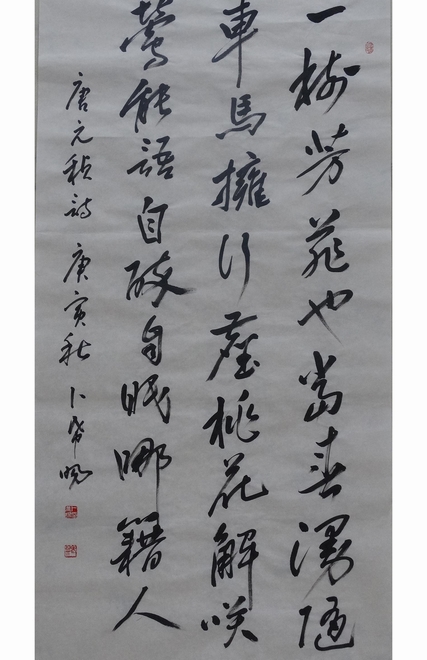 一樹芳菲也當春漫隨
車馬擁行塵桃花解咲
鶯能語自醉自眠哪籍人
唐元稹詩 庚寅秋 卜希暘